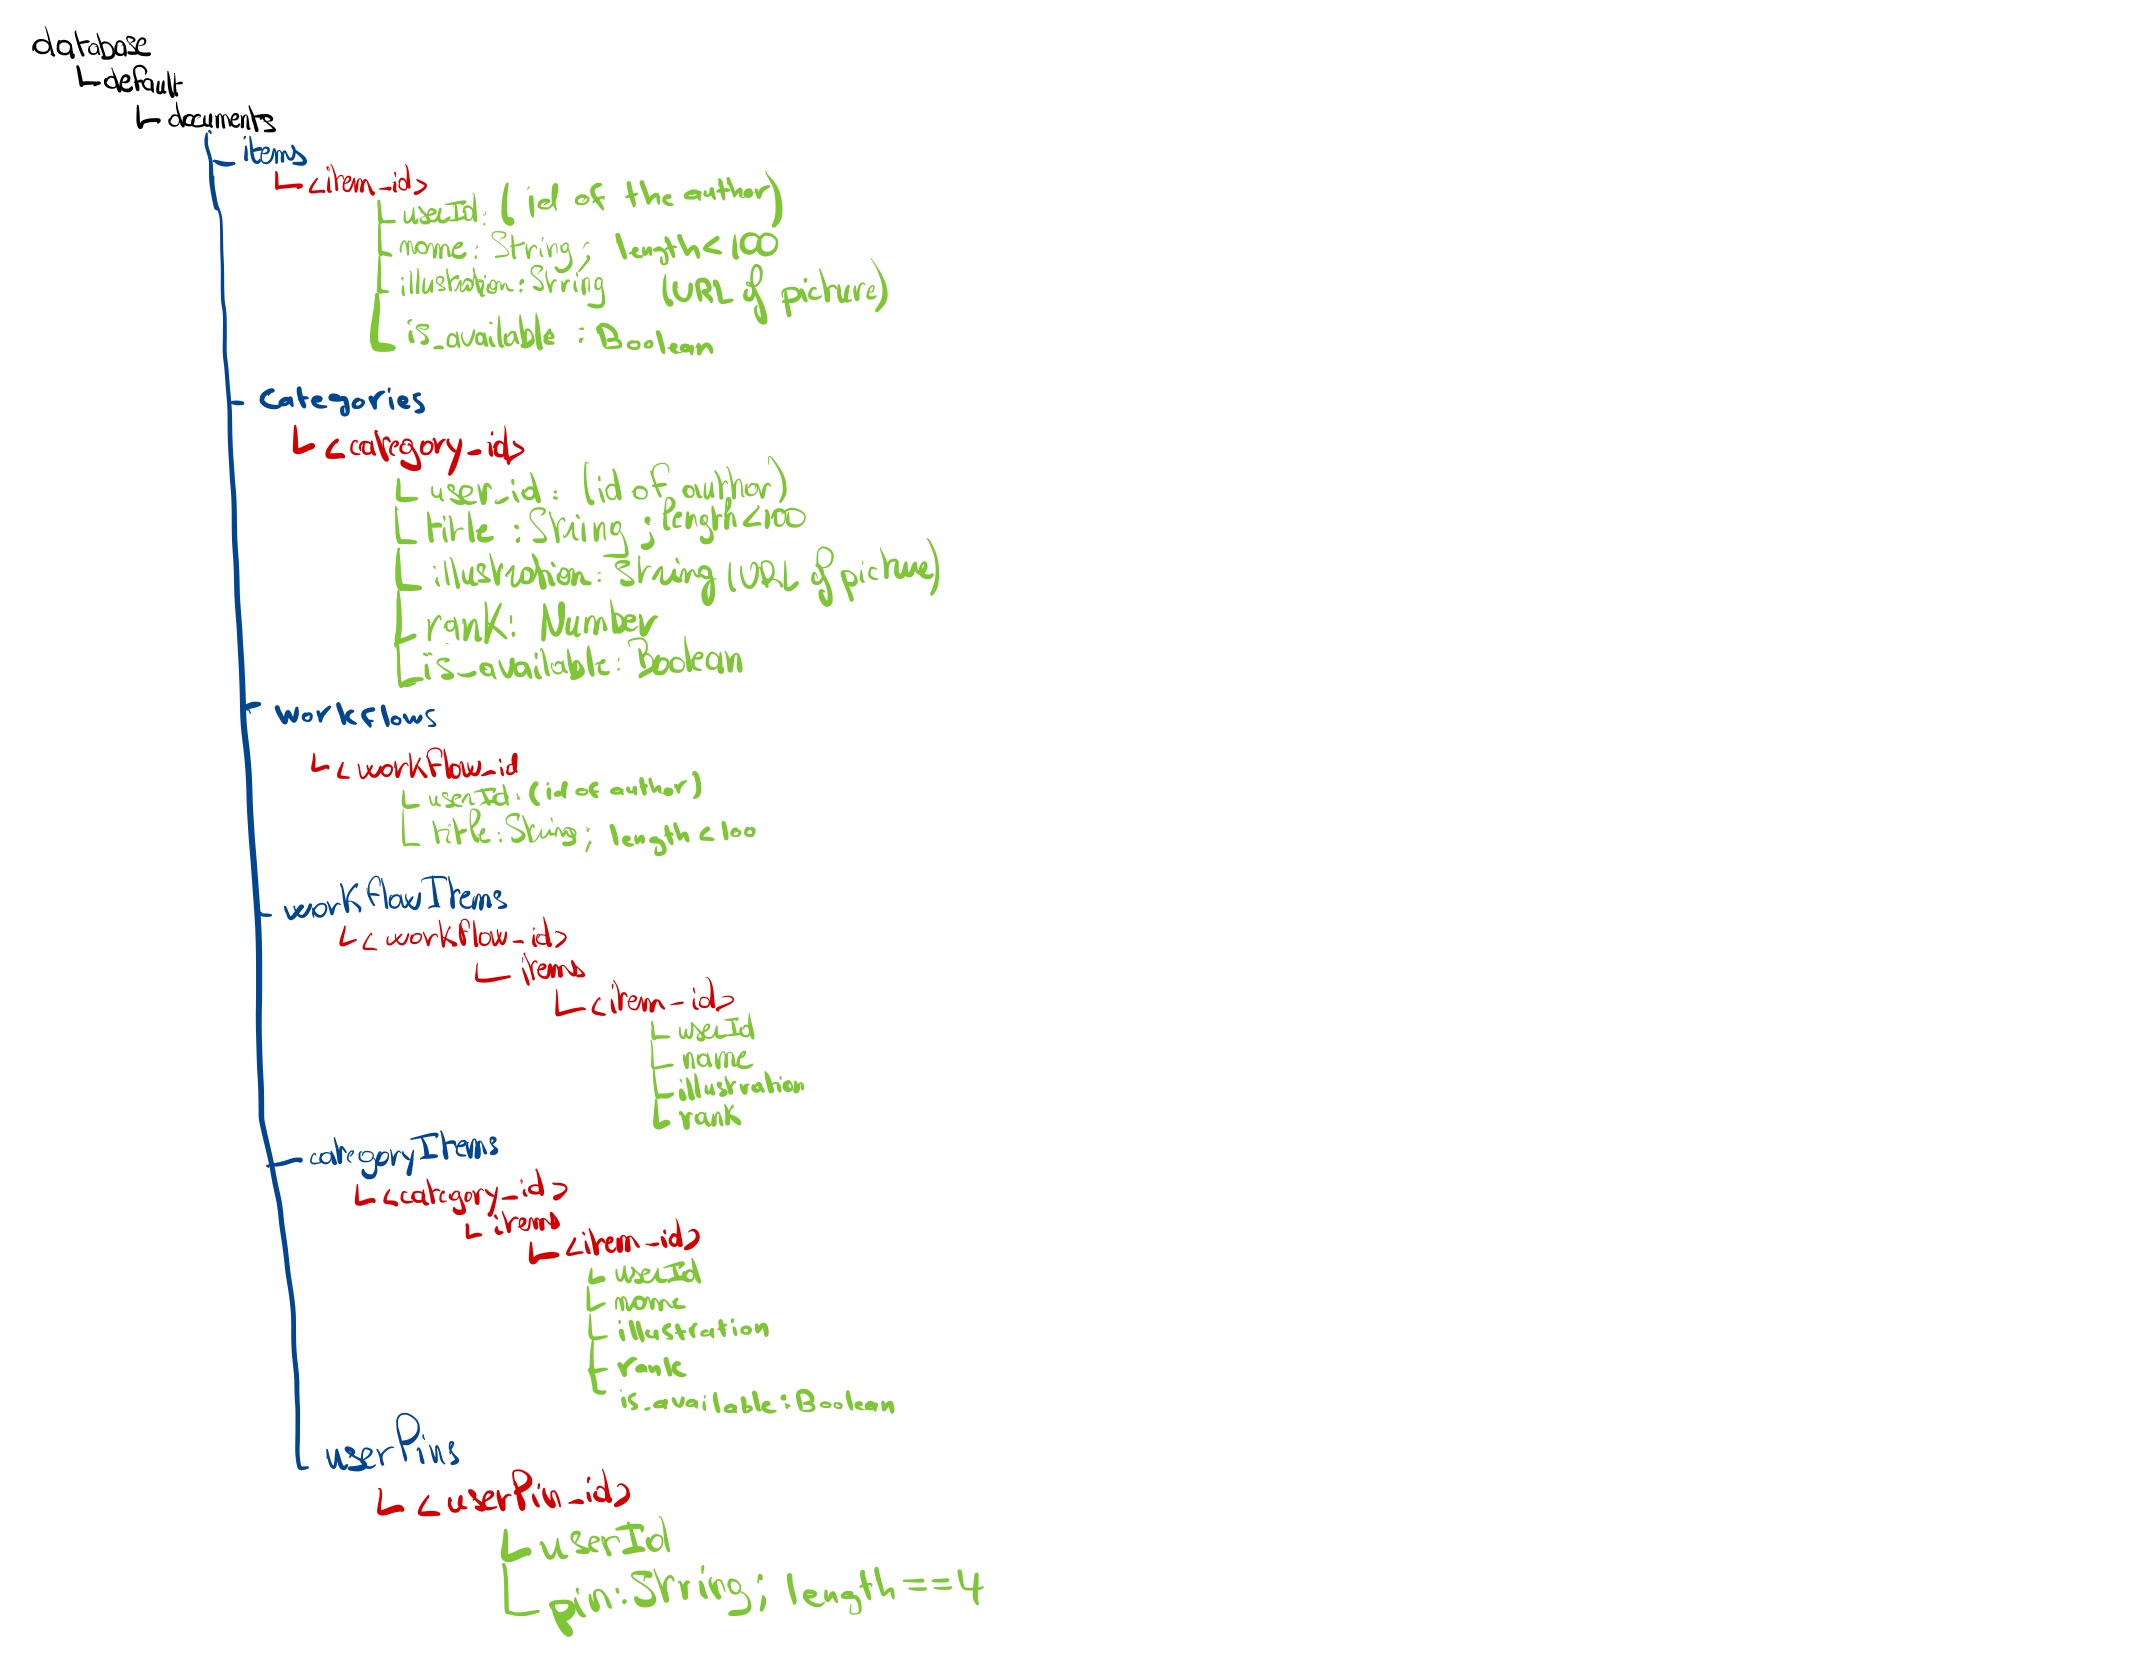 database
default
documents
items
<item_id>
userId: (id of the author)
name: String; length<100
illustration: String (URL of picture)
is_available : Boolean
Categories
<category_id>
user_id: (id of author)
title : String ; length<100
illustration: String (URL of picture)
rank: Number
is_available: Boolean
Workflows
<workflow_id
userId: (id of author)
title: String; length<100
workflowItems
<workflow_id>
items
<item_id>
userId
name
illustration
rank
categoryItems
<category_id>
items
<item_id>
userId
name
illustration
rank
is_available: Boolean
userPins
<userPin_id>
userId
pin: String; length==4